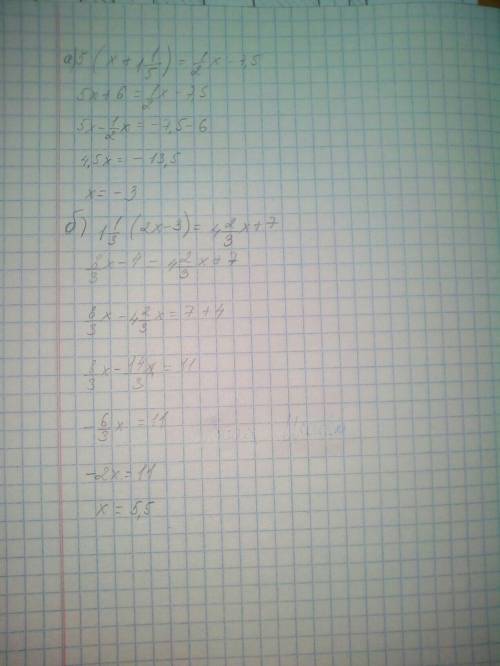 а) 5(x+1 1/5) = 1/2 x-7,5
5x+6 = 1/2 x-7,5
5x-1/2 x = -7,5-6
4,5x = -13,5
x = -3
б) 1 1/3 (2x-3) = 4 2/3 x+7
8/3 x-4 = 4 2/3 x+7
8/3 x-4 2/3 x = 7+4
8/3 x-14/3 x = 11
-6/3 x = 11
-2x = 11
x = 5,5